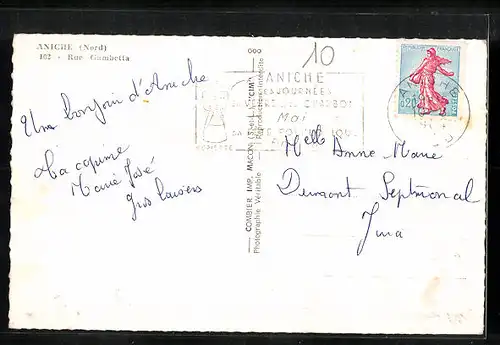 ANICHE (Nord)
102 - Rue Gambetta
10
REPUBLIQUE FRANÇAISE
0,20
ANICHE
SES JOURNÉES
DU VERRE DU CHARBON
Mai
Un bonjour d'Aniche
La copine
Marie José
Gros baisers
COMBIER IMP. MACON (S.-et-L.) "CIM"
Photographie Véritable
Reproduction interdite
Melle Anne-Marie
Dumont Septmoncel
Jura